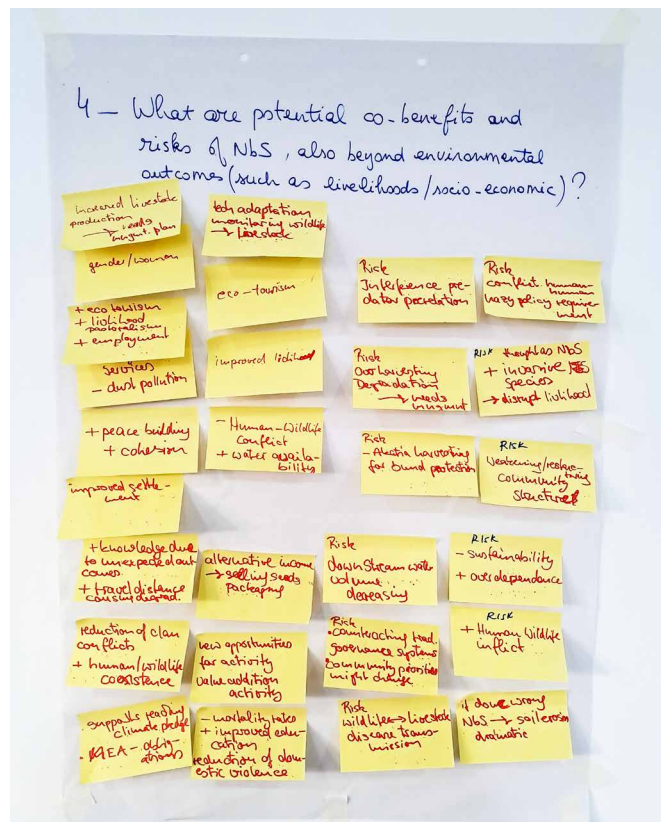 4 - What are potential co-benefits and
risks of NbS, also beyond environmental
outcomes (such as livelihoods/socio-economic)?
increased livestock
production
→ needs
mngmt. plan
gender/women
+ eco tourism
+ livlihood
pastoralism
+ employment
services
- dust pollution
+ peace building
+ cohesion
improved settle-
ment
+ knowledge due
to unexpected out
comes
+ travel distance
reduction of clan
conflicts
+ human/wildlife
coexistence
• supports
climate pledge
tech adaptation
monitoring wildlife
→ livestock
eco-tourism
improved livlihood
- Human-Wildlife
conflict
+ water availa-
bility
alternative income
→ selling seeds
packaging
new opportunities
for activity
value addition
activity
- mortality rates
+ improved edu-
cation
reduction of dom-
estic violence
Risk
Interference pre-
dator
Risk
Overharvesting
Degradation
→ needs
mngmnt
Risk
harvesting
for bund protection
Risk
downstream water
volume
decreasing
Risk
• counteracting trad.
governance systems
community priorities
might change
Risk
wildlife → livestock
disease trans-
mission
Risk
conflict human-
human
policy require-
ment
RISK
+ invasive
species
→ disrupt livlihood
RISK
community
structures
RISK
- sustainability
+ over dependance
RISK
+ Human Wildlife
if done wrong
NbS → soil erosion
dramatic